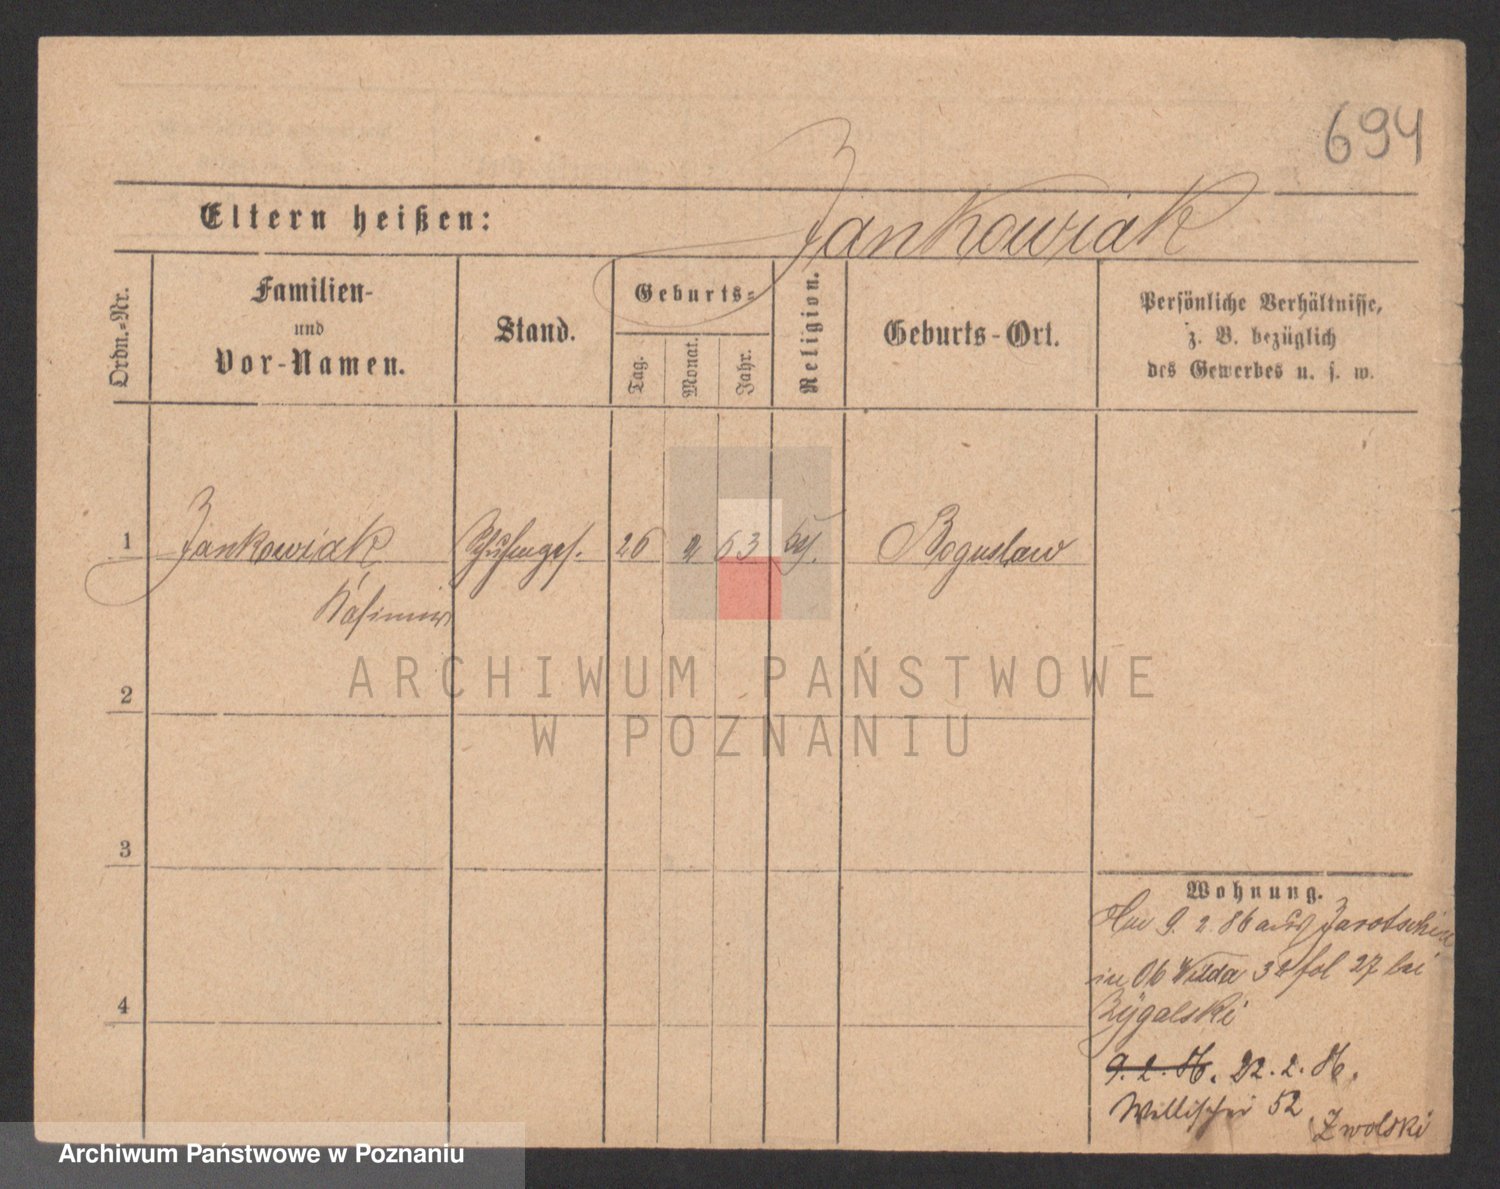 694
Eltern heißen: Jankowiak
Ordn.-Nr.
Familien-
und
Vor-Namen.
Stand.
Geburts-
Tag.
Monat.
Jahr.
Religion.
Geburts-Ort.
Persönliche Verhältnisse,
z. B. bezüglich
des Gewerbes u. s. w.
1 Jankowiak 26 2 63 Boguslaw
Kasimir
2
3
4
Wohnung.
9. 2. 86 aus Jarotschin
in Ob Wilda 32 fol 27 bei
Rÿgalski
9. 2. 86. 22. 2. 86.
52
Zwolski
ARCHIWUM PAŃSTWOWE
W POZNANIU
Archiwum Państwowe w Poznaniu